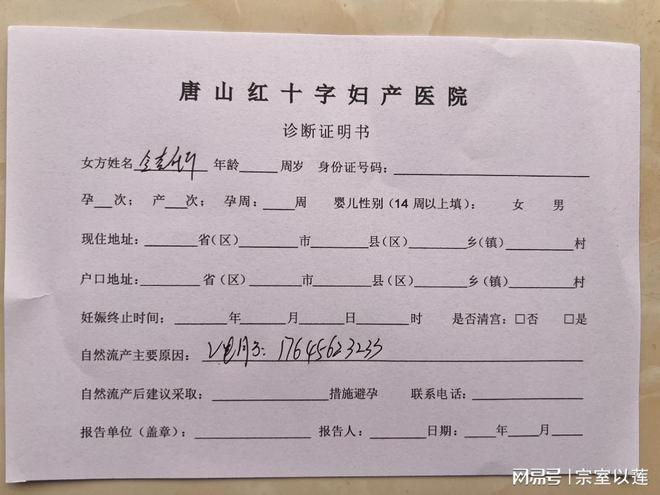 唐山红十字妇产医院
诊断证明书
女方姓名 年龄____周岁 身份证号码：____
孕__次； 产__次； 孕周：____周 婴儿性别（14周以上填）： 女 男
现住地址：____省（区）____市____县（区）____乡（镇）____村
户口地址：____省（区）____市____县（区）____乡（镇）____村
妊娠终止时间：____年____月____日____时 是否清宫：□否 □是
自然流产主要原因： 17645623233
自然流产后建议采取：____措施避孕 联系电话：____
报告单位（盖章）：____ 报告人：____日期：____年____月____
网易号 | 宗室以莲